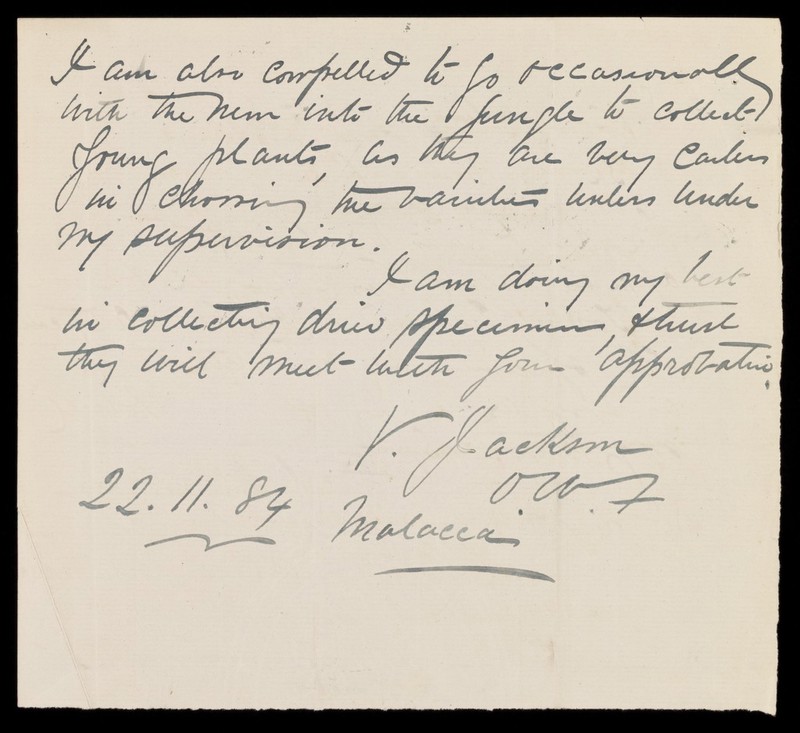 I am also compelled to go occasionally
with the men into the Jungle to collect
Young plants, as they are very careless
in choosing the varieties unless under
my supervision.
I am doing my best
in collecting dried specimens, & trust
they will meet with your approbation.
V. Jackson
22.11.84
Malacca